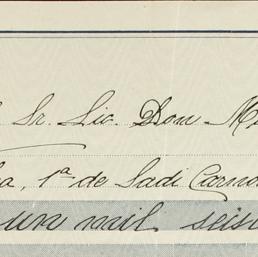 Sr. Lic. Don
1ª de Sadi Carno
un mil seis